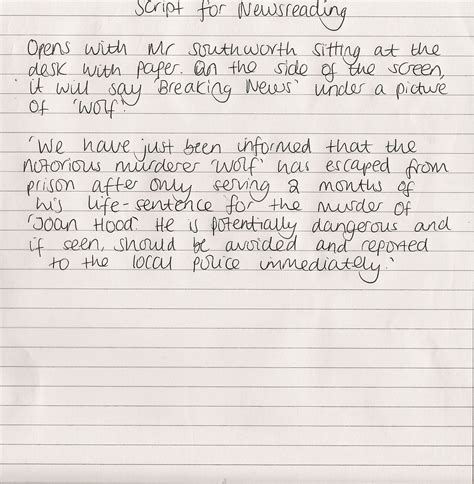 Script for Newsreading
Opens with Mr Southworth sitting at the
desk with paper. On the side of the screen,
it will say 'Breaking News' under a picture
of 'Wolf'.
'We have just been informed that the
notorious murderer 'Wolf' has escaped from
prison after only serving 2 months of
his life-sentence for the murder of
'Joan Hood'. He is potentially dangerous and
if seen, should be avoided and reported
to the local police immediately.'